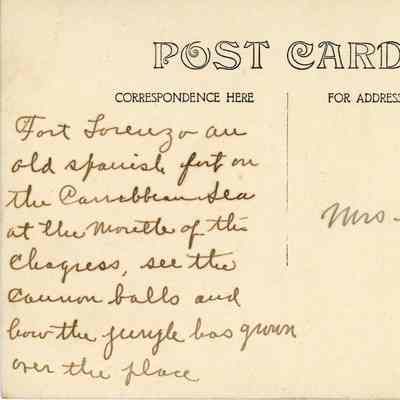 POST CARD
CORRESPONDENCE HERE
FOR ADDRESS
Fort Lorenzo an
old spanish fort on
the Carrabbean Sea
at the Mouth of the
Chagress, see the
Cannon balls and
how the jungle has grown
over the place
Mrs.